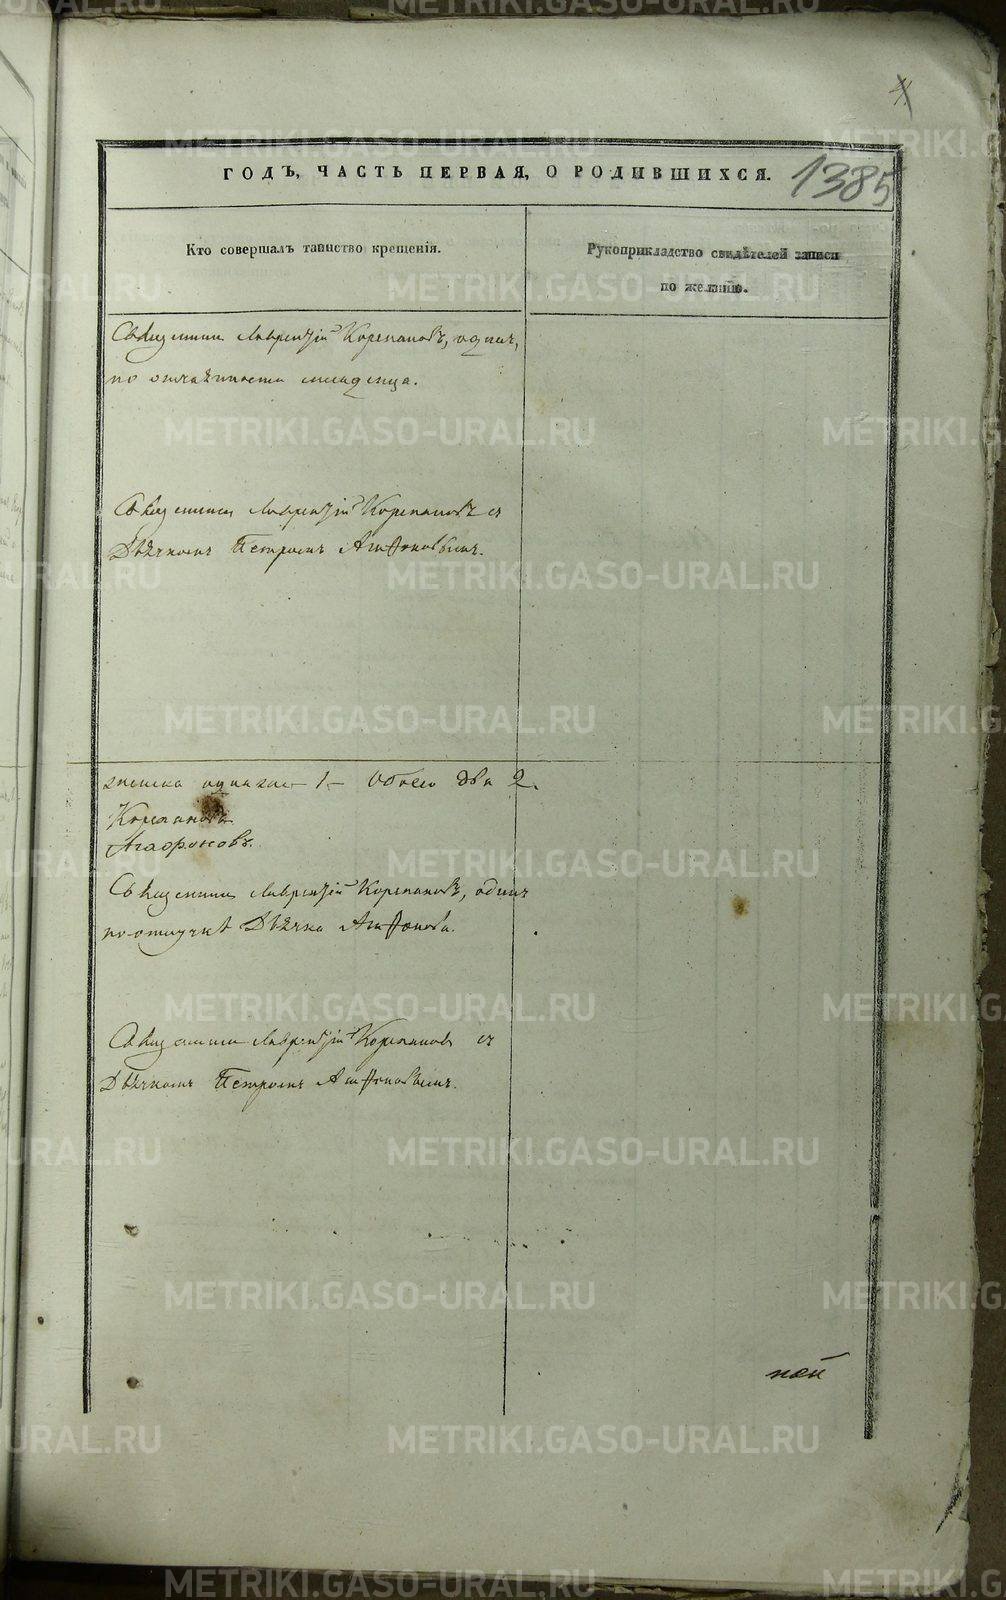 4
ГОДЪ, ЧАСТЬ ПЕРВАЯ, О РОДИВШИХСЯ.
1385
Кто совершалъ таинство крещенія.
Рукоприкладство свидѣтелей записи
по желанію.
Священникъ Лаврентій Корепановъ, одинъ,
по младенца.
Священникъ Лаврентій Корепановъ съ
Дьячкомъ Петромъ Агафоновымъ.
1 Обоего два 2.
Корепановъ
Агафоновъ.
Священникъ Лаврентій Корепановъ, одинъ
по отлучкѣ Дьячка Агафонова.
Священникъ Лаврентій Корепановъ съ
Дьячкомъ Петромъ Агафоновымъ.
METRIKI.GASO-URAL.RU